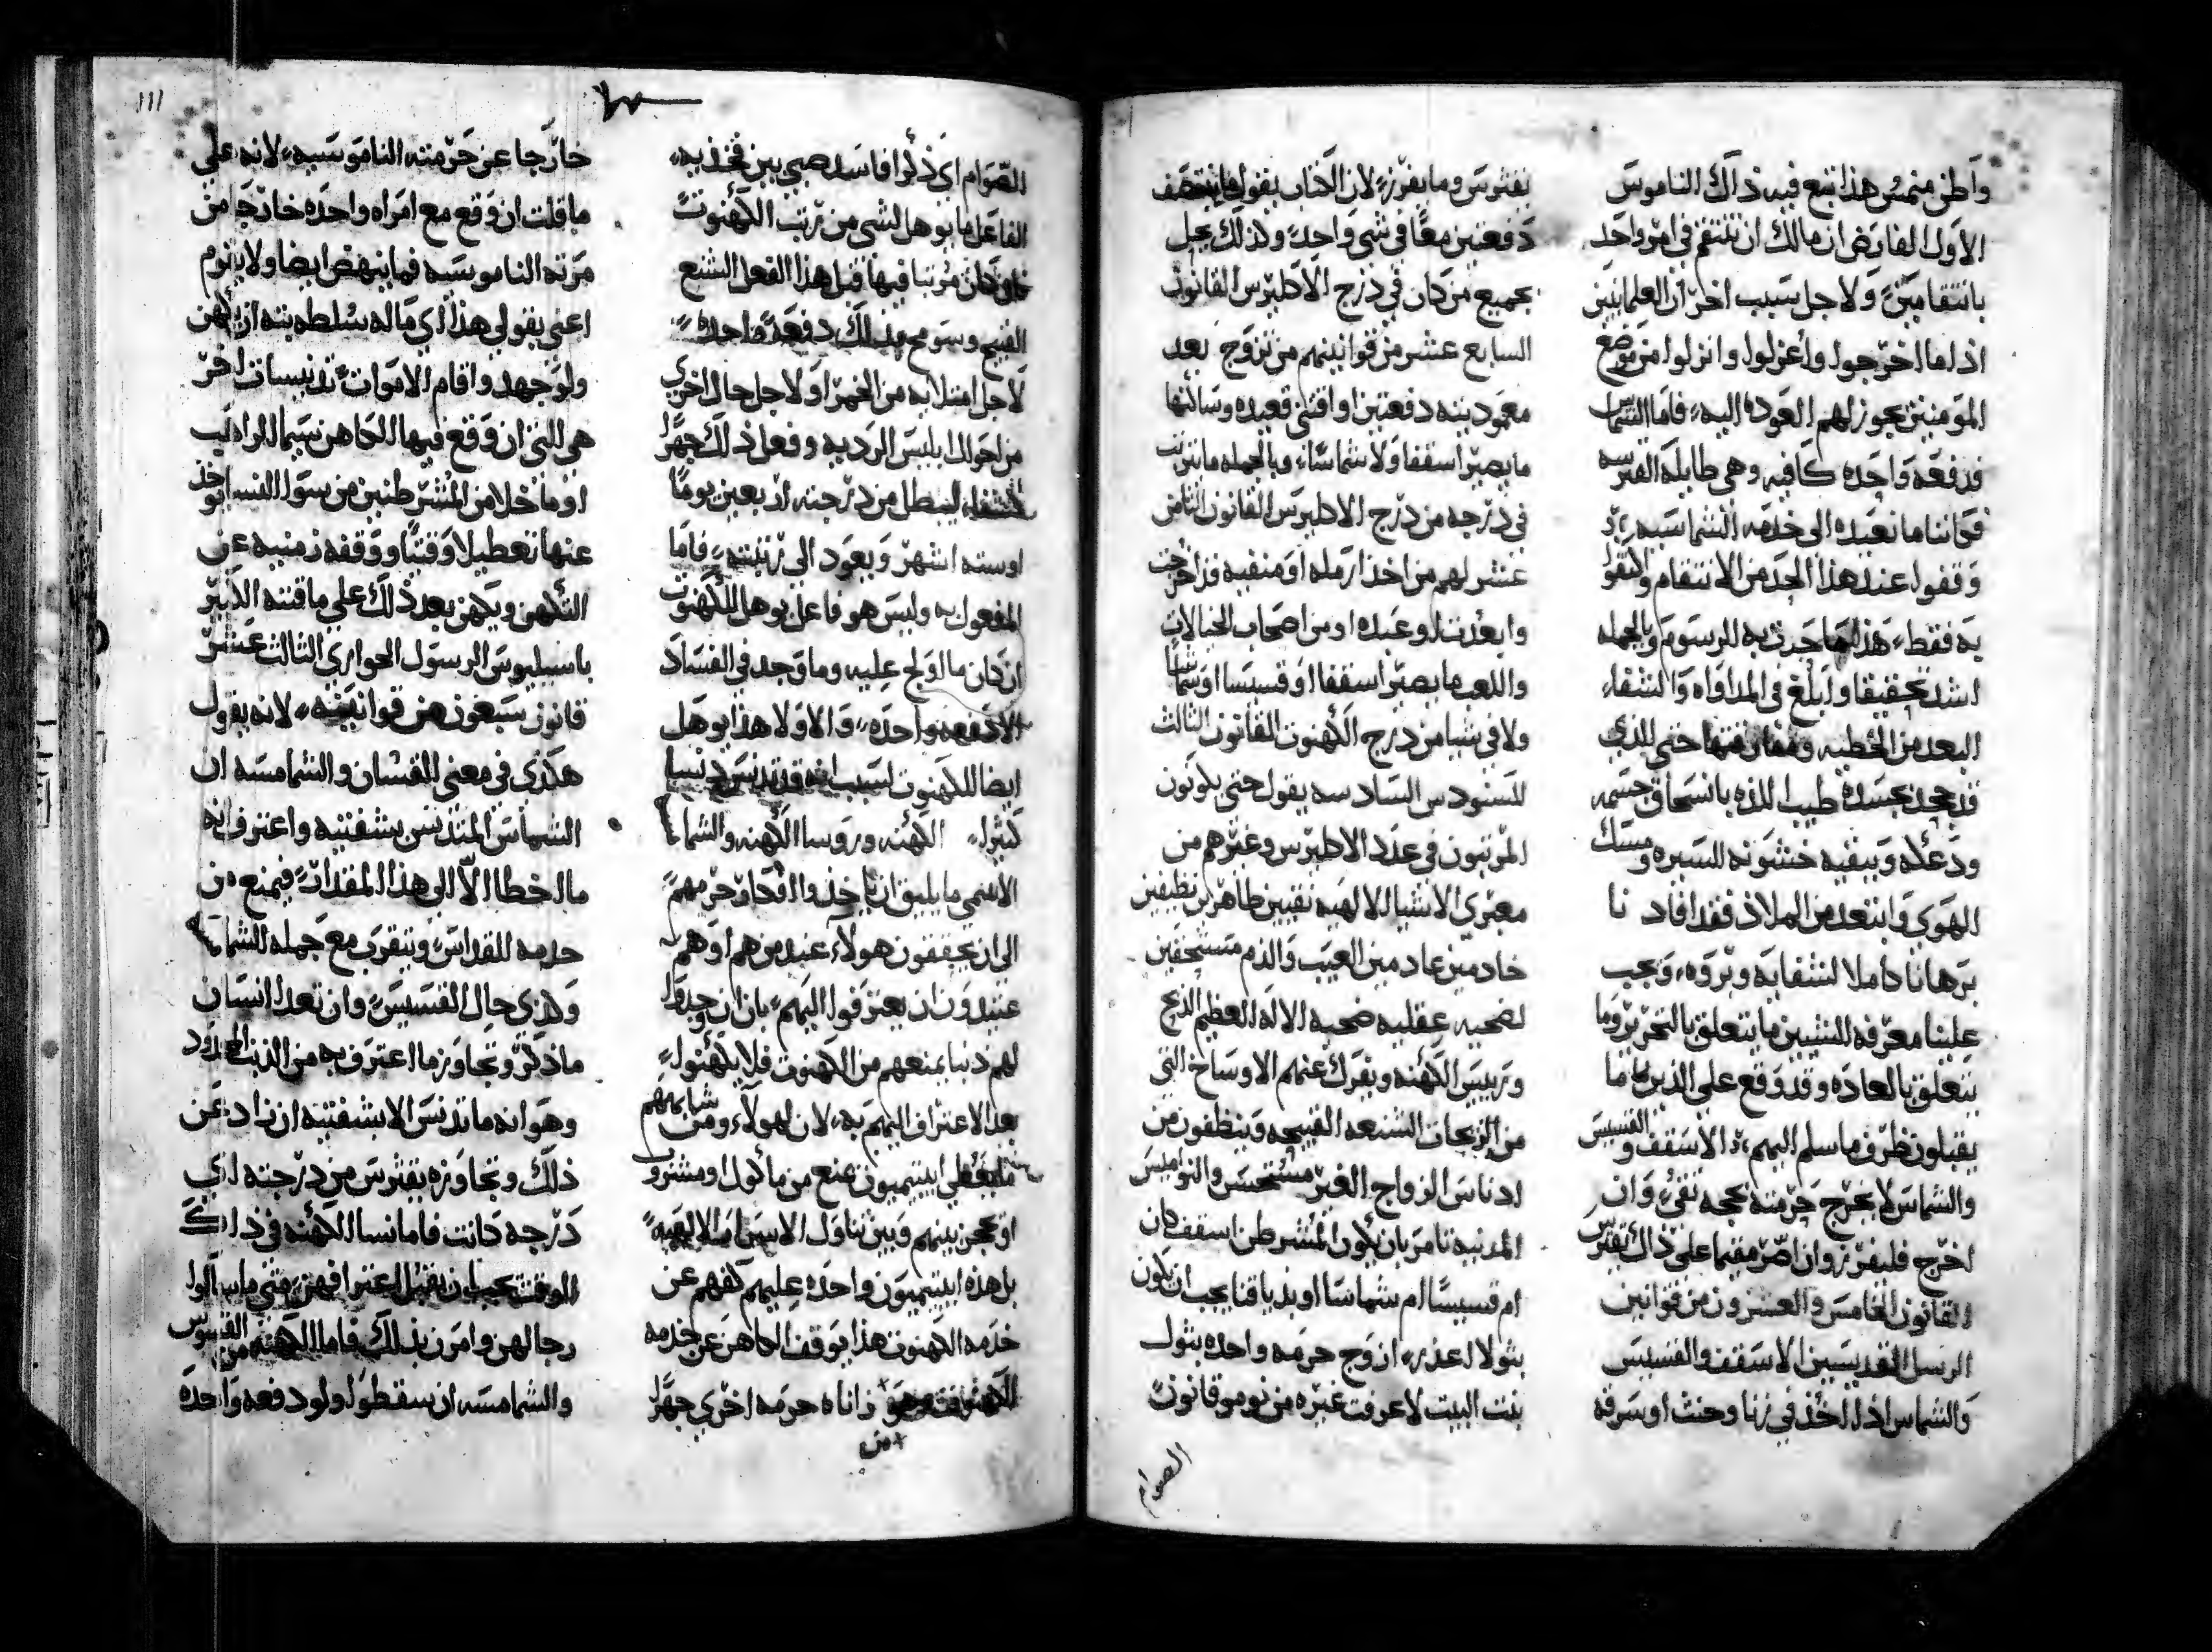 واظن منمس هذا تبع فيه ذاك الناموس
الاول الفارض ان مالك ان تنتقم في امر واحد
بانتقامين ولاجل سبب اخر ان العلمانيين
اذا ما اخرجوا واعزلوا وانزلوا من موضع
المومنين يجوز لهم العوده اليه فاما الشماس
فدفعه واحده كافيه وهي طايله الفرسه
قواننا ما نعيده الى خدمه الشماسيه
وقفوا عند هذا الحد من الانتقام واكتفوا
به فقط هذا ما جرت به الرسوم وبالجمله
اشد تحقيقا وابلغ في المداواه والشفاء
البعد من الخطيه ومفارقتها حتى الذي
قد جحد بجسده طيب اللذه بانسحاق جسمه
ودعله ويبقيه خشونه السيره ومسك
الهوى وابتعد من الملاذ فقد افاد نا
برهانا كاملا لشفايه وبروه ويجب
علينا معرفه الشيين ما يتعلق بالتحرير وما
يتعلق بالعاده وقد وقع على الذين ما
يقبلون ظرف ما سلم اليهم الاسقف والقسيس
والشماس لا يخرج حرمته بحجه تقي وان
اخرج فليفرز وان اصر مقيما على ذاك يقترس
القانون الخامس والعشرون من قوانين
الرسل القديسين الاسقف والقسيس
والشماس اذا اخذ في زنا وحنث او سرقه
يقترس وما يفرز لان الكتاب يقول ما ينتصف
دفعتين معا في شي واحد وكذلك يجل
بجميع من كان في درج الاكليرس القانون
السابع عشر من قوانينهم من تزوج بعد
معموديته دفعتين او اقتنى قعيده وساكنها
ما يصير اسقفا ولا شماسا وبالجمله ما يترتب
في درجه من درج الاكليرس القانون الثامن
عشر لهم من اخذ ارمله او منفيه قد اخرجت
وابعدت او عبده او من اصحاب الخيالات
واللعب ما يصير اسقفا او قسيسا او شماسا
ولا في شيا من درج الكهنوت القانون الثالث
للسنودس السادسه يقول حتى يكونون
المرتبون في عدد الاكليرس وغيرهم من
معبري الاشيا الالهيه نقيين طاهرين نظيفين
خادمين عادمين العيب والذم مستحقين
لضحيه عقليه ضحيه الاله العظيم الذبح
ورييس الكهنه ويفرك عنهم الاوساخ التي
من الزيجات الشنعه القبيحه وينظفون من
ادناس الزواج الغير مستحسن والنواميس
المدنيه تامر بان يكون المتشرطن اسقف كان
ام قسيسا ام شماسا او بدياقنا يجب ان يكون
بتولا اعذر ازوج حرمه واحده بتول
بنت البيت لا عرفت غيره من نومو قانون
الصوام
الصوام اي ذكرا فاسد صبي بين فخذيه
الفاعل ما يوهل لشي من رتب الكهنوت
كان مرتبا فيها قبل هذا الفعل الشنع
القبيح وسومح بذلك دفعه واحده
لاجل امتلايه من الخمر او لاجل حال اخري
من احوال ابليس الرديه وفعل ذلك جهرا
لشقاء ليبطل من درجته اربعين يوما
او سته اشهر ويعود الى رتبته فاما
المفعول به وليس هو فاعل يوهل للكهنوت
ان كان ما اولج عليه وما وجد في الفساد
الا دفعه واحده والا ولا هذا يوهل
ايضا للكهنوت لسبب انه قد تدنس دنسا
كثيرا الكهنه وروسا الكهنه والشما
الاسمى ما يليق ان ياخذوا افكار حرمهم
الى ان يحققون هولاء عند من هم او هم
عتيدون ان يعترفوا اليهم بان ان وجدوا
لهم دنبا يمنعهم من الكهنوت فلا يكهنوا
بعد الاعتراف اليهم به لان لهولاء ومن شابههم
ما يبقى ابيتيميون عنع من ماكول او مشروب
او يحجز بينهم وبين تناول الاسرار الالهيه
بل هذه ابيتيميون واحده عليهم كفهم عن
خدمه الكهنوت هذا يوقف الكاهن عن خدمه
الكهنوت وهو زاناه حرمه اخري جهرا
+ من
١١١
خارجا عن حرمته الناموسيه لانه علي
ما قلت ان وقع مع امراه واحده خارجا من
مرته الناموسيه فما ينهض ايضا ولا يقوم
اعني بقولي هذا اي ما له سلطه بته ان يكهن
ولو جهد واقام الاموات تدنيسات اخر
هي التي ان وقع فيها الكاهن سيما الراهب
او ما خلا من المتشرطنين من سوا الفسا يوخذ
عنها تعطيلا وقتيا ووقفه زمنيه عن
التكهن ويكهن بعد ذلك علي ما قننه الكبير
باسيليوس الرسول الحواري الثالث عشر
قانون سبعون من قوانينه لانه يقول
هكذي في معني القسان والشمامسه ان
الشماس المتدنس بشفتيه واعترف انه
ما اخطا الا الى هذا المقدار فيمنع من
خدمه القداس ويتقرب مع جمله الشما
وكذي حال القسيس وان تعدا انسان
ما ذكر وتجاوز ما اعترف به من الذنب المحدود
وهو انه ما تدنس الا بشفتيه ان زاد عن
ذلك وتجاوزه يقترس من درجته اي
درجه كانت فاما نسا الكهنه في ذاك
الوقت يجب ان يقبل اعترافهن متي ما سالوا
رجالهن وامرن بذلك فاما الكهنه من القسوس
والشمامسه ان سقطوا ولو دفعه واحده